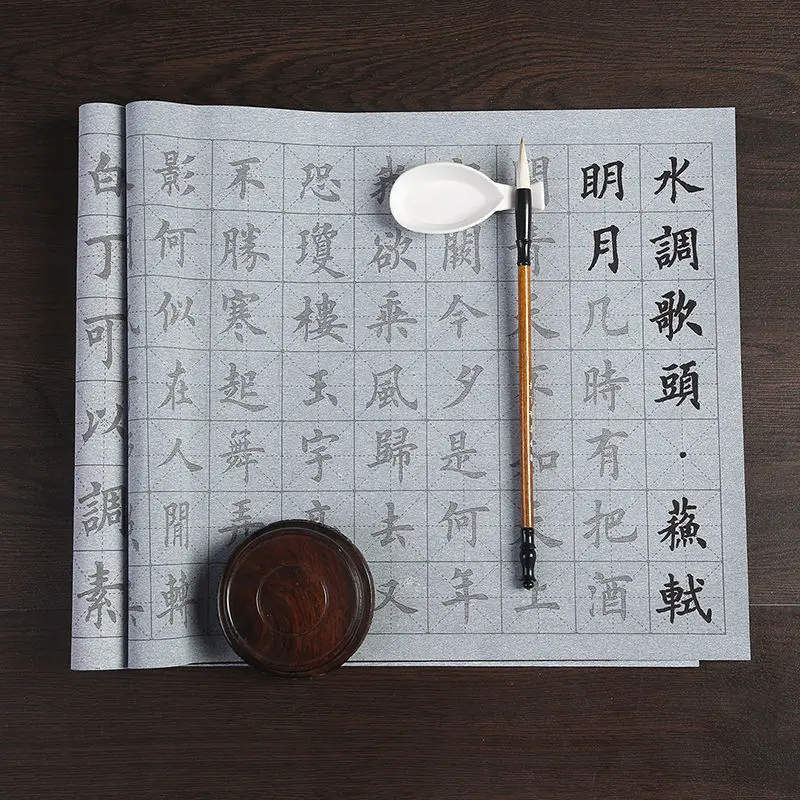 水調歌頭·蘓軾
眀月几時有把酒
問青天不知天上
闕今夕是何年
我欲乘風歸去又
恐瓊樓玉宇高
不勝寒起舞弄
影何似在人閒轉
白丁可以調素